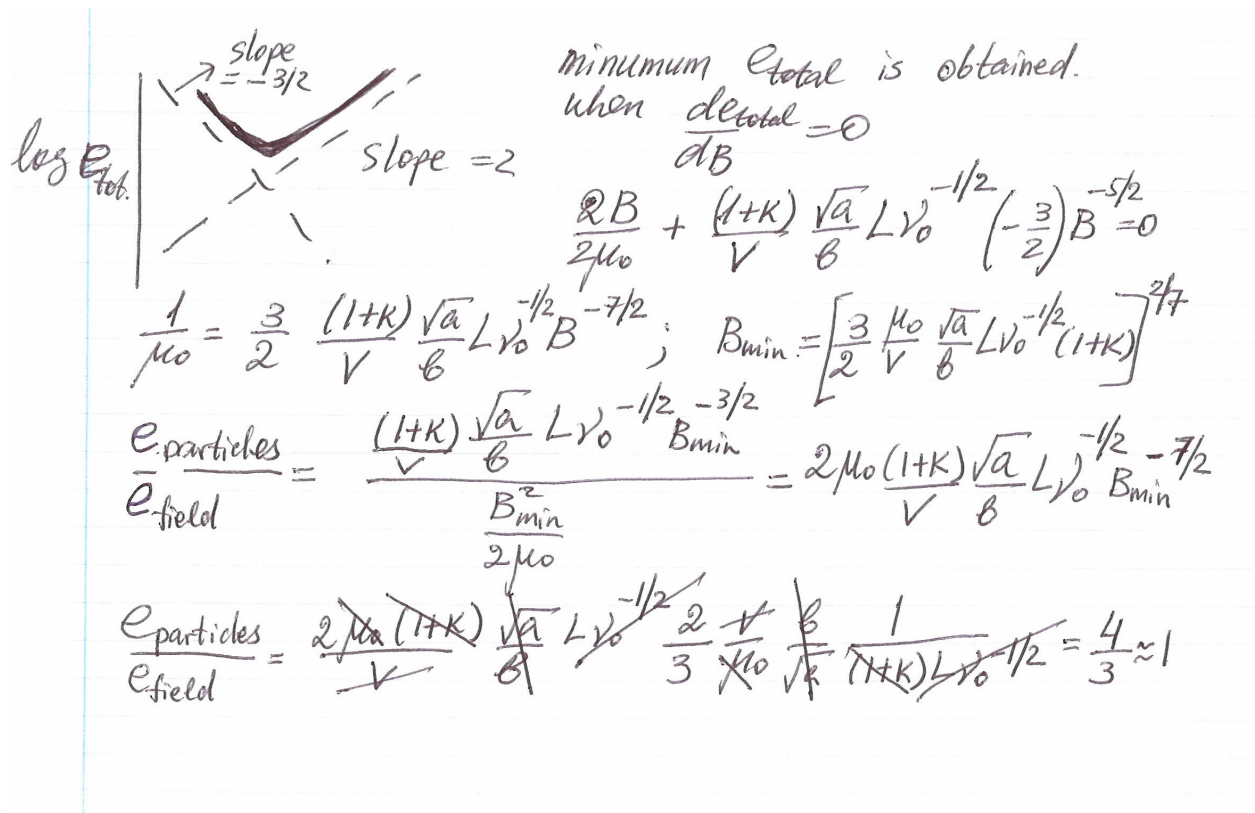 slope
= − 3/2
log e_tot.
slope = 2
minumum e_total is obtained.
when de_total/dB = 0
2B/2μ₀ + (1+K)/V √a/b Lν₀^(-1/2) (−3/2) B^(-5/2) = 0
1/μ₀ = 3/2 (1+K)/V √a/b Lν₀^(-1/2) B^(-7/2) ; B_min. = [3/2 μ₀/V √a/b Lν₀^(-1/2) (1+K)]^(2/7)
e_particles/e_field = ((1+K)/V √a/b Lν₀^(-1/2) B_min^(-3/2))/(B_min^2/2μ₀) = 2μ₀(1+K)/V √a/b Lν₀^(-1/2) B_min^(-7/2)
e_particles/e_field = 2μ₀(1+K)/V √a/b Lν₀^(-1/2) 2/3 V/μ₀ b/√a 1/((1+K)Lν₀^(-1/2)) = 4/3 ≈ 1